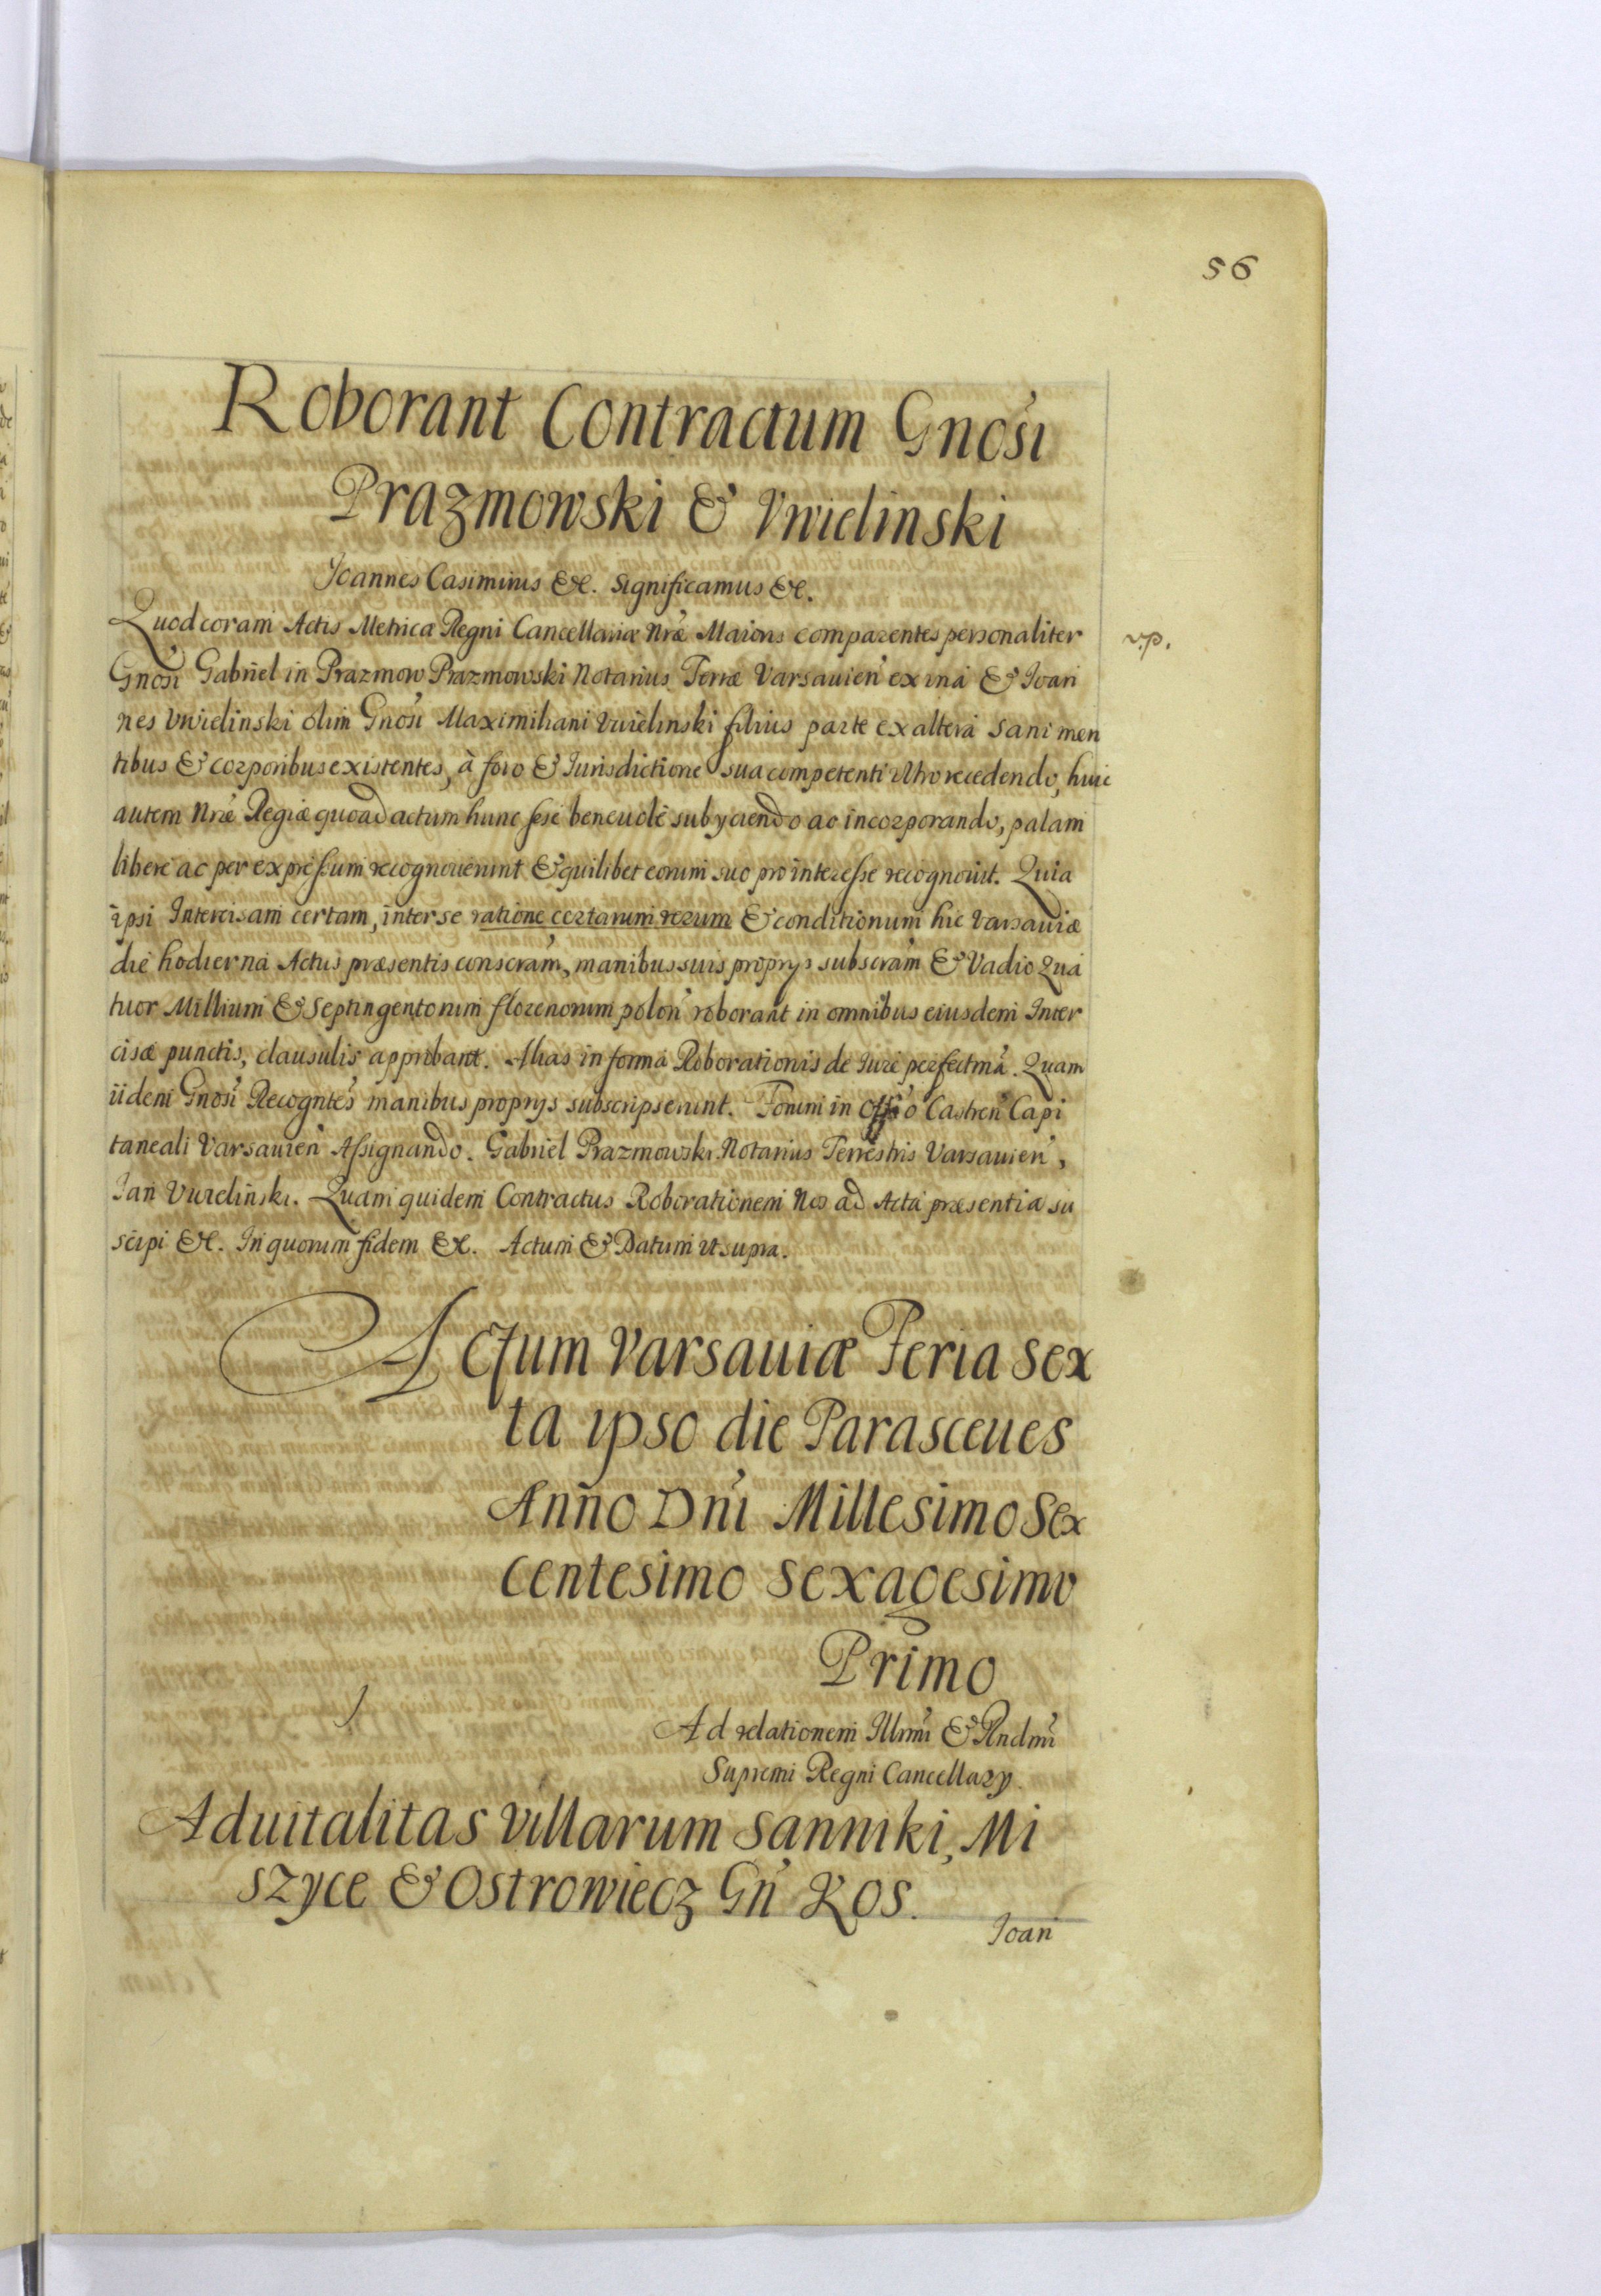 56
Roborant Contractum Gnosi
Prazmowski & Vwielinski
Joannes Casimirus &c. Significamus &c.
Quod coram Actis Metricæ Regni Cancellariæ Nræ Maioris comparentes personaliter
v.p.
Gnosi Gabriel in Prazmow Prazmowski Notarius Terræ Varsauien ex una & Joan
nes Vwielinski olim Gnosi Maximiliani Vwielinski filius parte ex altera sani men
tibus & corporibus existentes, à foro & Jurisdictione sua competenti Vltro recedendo, huic
autem Nræ Regiæ quoad actum hunc sese beneuole subyciendo ac incorporando, palam
libere ac per expressum recognouerunt & quilibet eorum suo pro interesse recognouit. Quia
ipsi Intercisam certam, inter se ratione certarum rerum & conditionum hic Varsauiæ
die hodierna Actus præsentis conscram, manibus suis proprys subscram & Vadio Qua
tuor Millium & Septingentorum florenorum polon roborant in omnibus eiusdem Inter
cisæ punctis, clausulis approbant. Alias in forma Roborationis de Jure perfectma. Quam
iidem Gnosi Recogntes manibus proprys subscripserunt. Forum in Offo Castren Capi
taneali Varsauien Assignando. Gabriel Prazmowski Notarius Terrestris Varsauien,
Jan Vwielinski. Quam quidem Contractus Roborationem Nos ad Acta præsentia su
scipi &c. In quorum fidem &c. Actum & Datum vt supra.
Actum Varsauiæ Feria Sex
ta ipso die Parasceues
Anno Dni Millesimo Sex
centesimo Sexagesimo
Primo
Ad relationem Illmi & Rndmi
Supremi Regni Cancellary.
Aduitalitas Villarum Sanniki, Mi
szyce & Ostrowiecz Gn Kos.
Joan